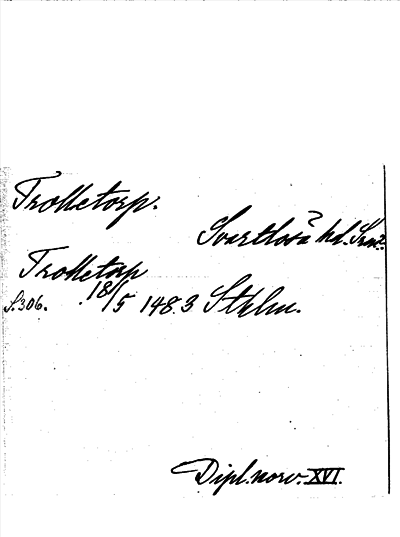 Trolletorp.
Svartlösa hd. Srm?
Trolletorp
S. 306. 18/5 1483 Sthlm.
Dipl. norv. XVI.